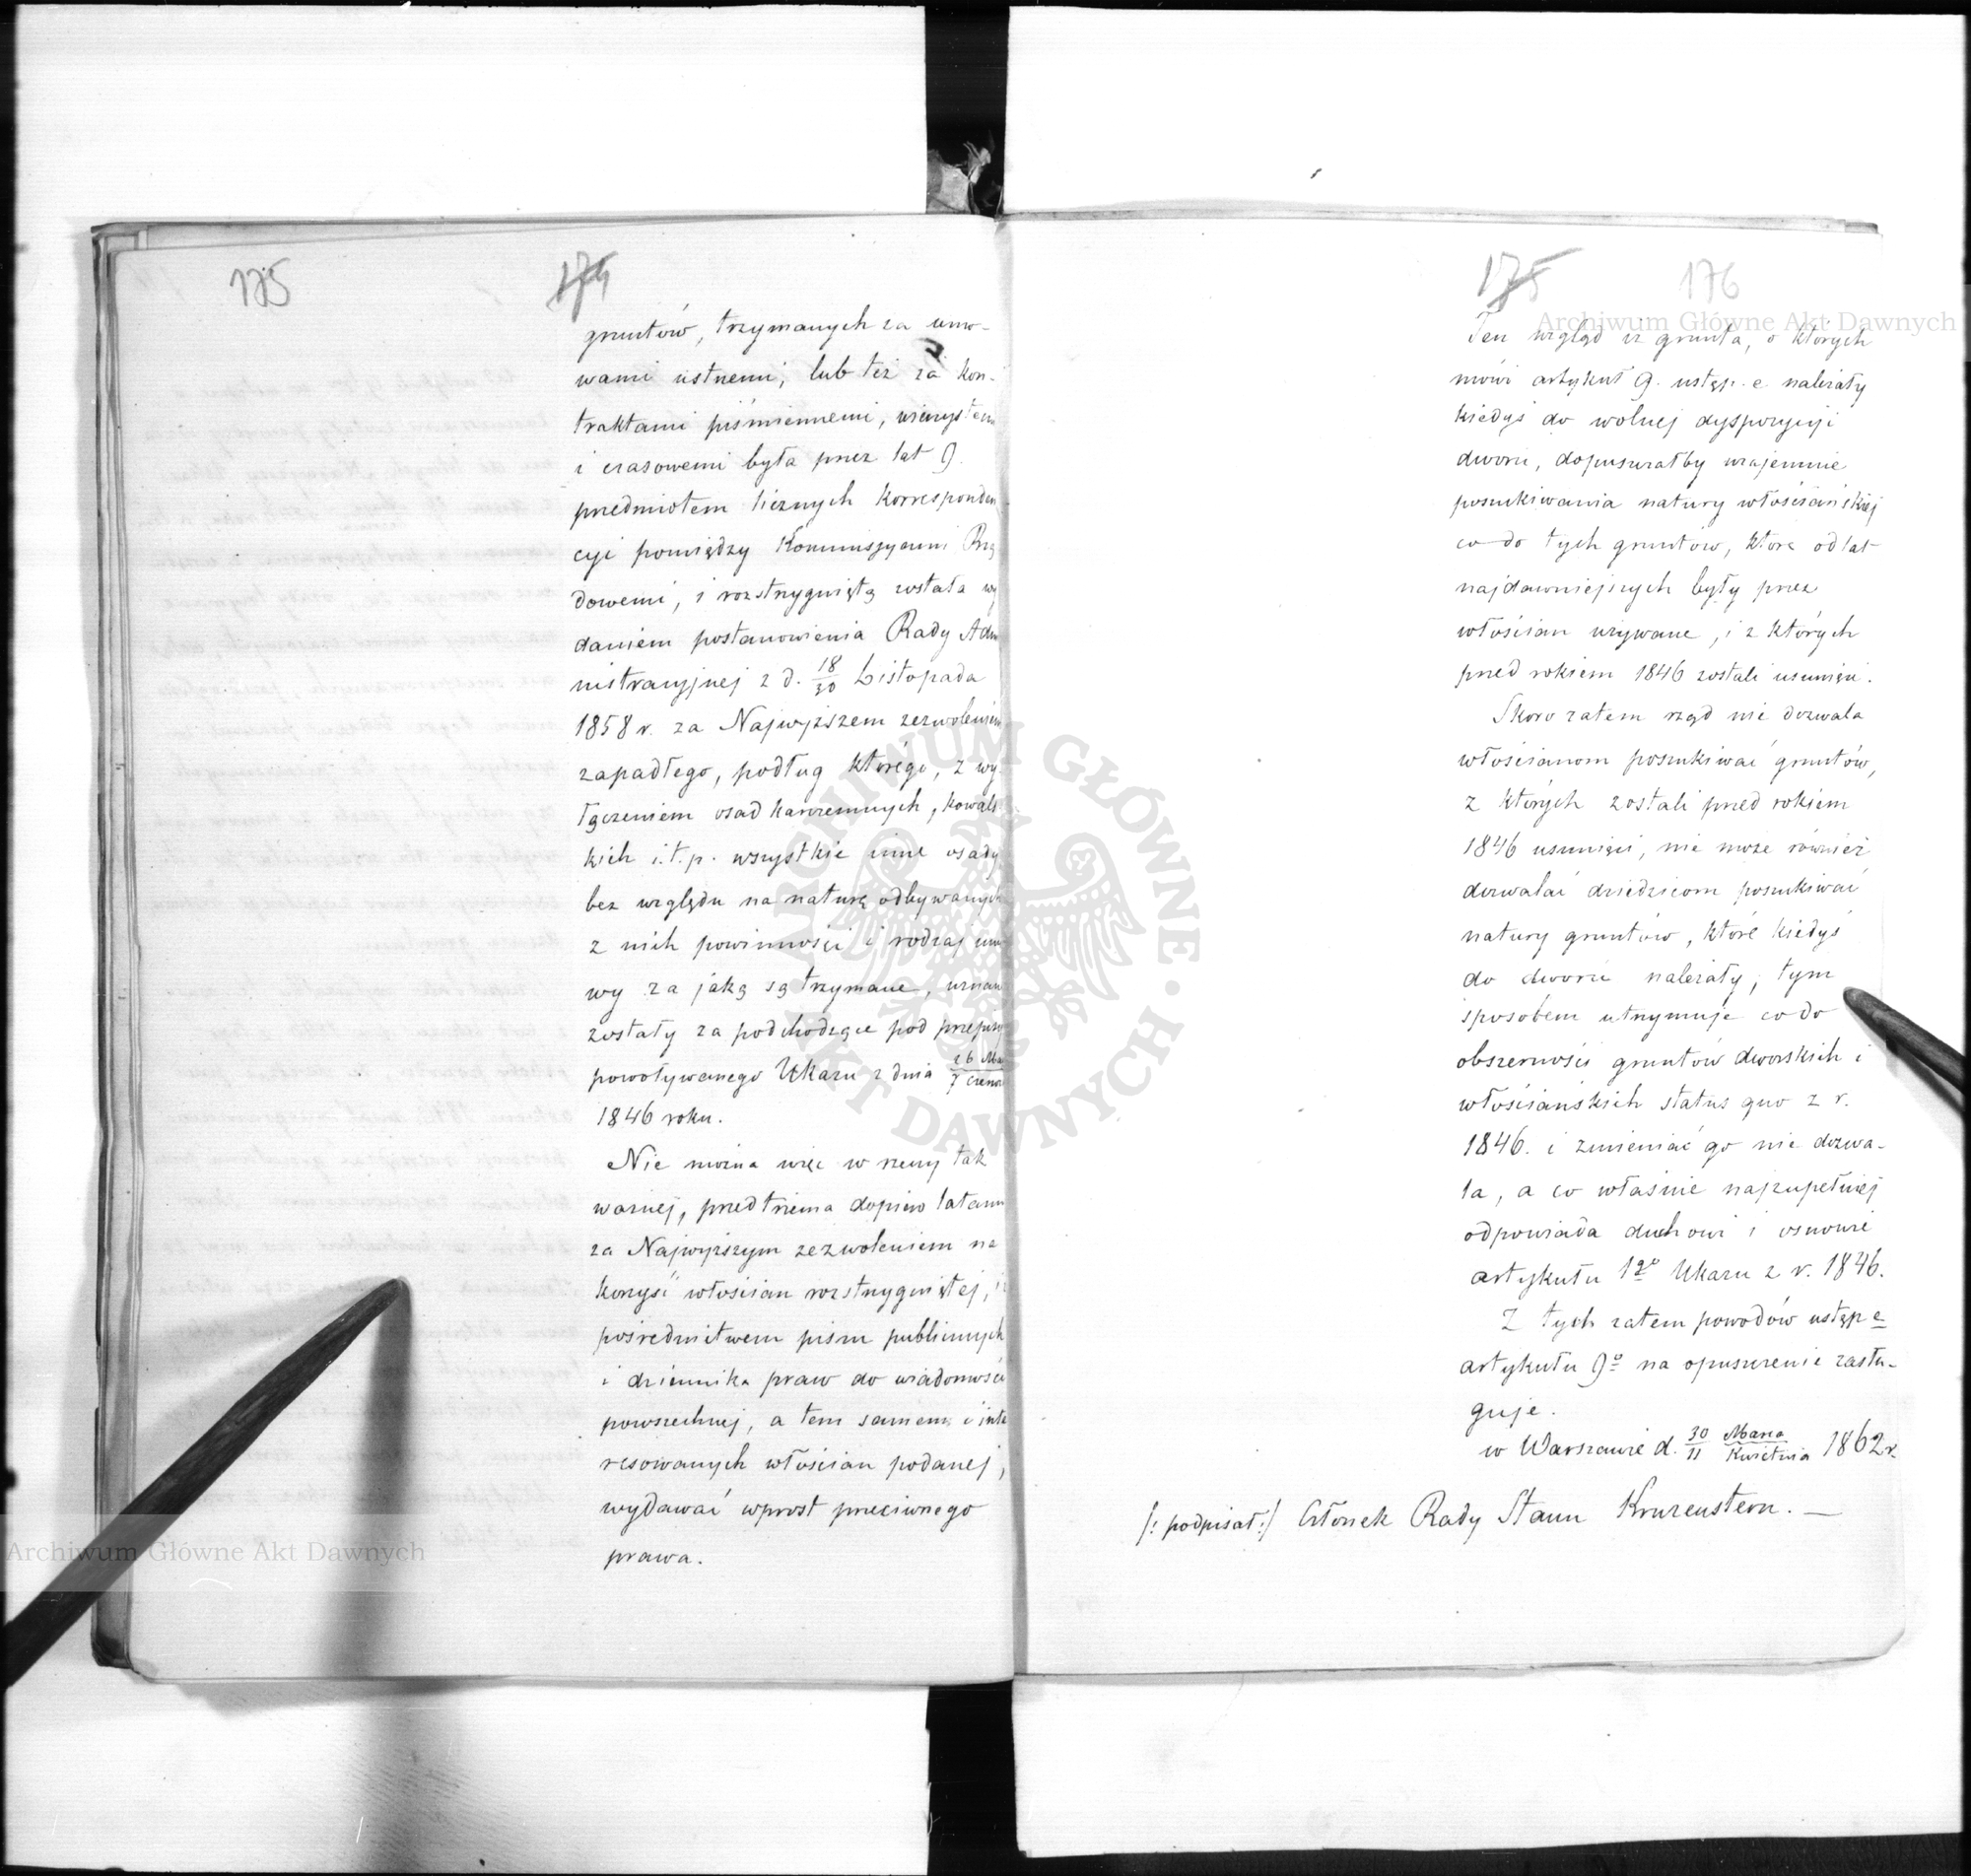 175 174
gruntów, trzymanych za umo-
wami ustnemi, lub też za kon-
traktami piśmiennemi, wieczystem
i czasowemi była przez lat 9.
przedmiotem licznych Korresponden
cyi pomiędzy Kommissyami Rzą
dowemi, i rozstrzygniętą została wy
daniem postanowienia Rady Adm
nistracyjnej z d. 18/30 Listopada
1858 r. za Najwyższem zezwoleniem
zapadłego, podług którego, z wy
łączeniem osad karczemnych, kowals
kich i.t.p. wszystkie inne osady
bez względu na naturę odbywanych
z nich powinności i rodzaj umo
wy za jaką są trzymane, uznan
zostały za podchodzące pod przepisy
powoływanego Ukazu z dnia 26 Ma/7 Czerw
1846 roku.
Nie można więc w rzeczy tak
ważnej, przed trzema dopiero latami
za Najwyższym zezwoleniem na
korzyść włościan rozstrzygniętej, i za
pośrednictwem pism publicznych
i dziennika praw do wiadomości
powszechnej, a tem samem i inte
resowanych włościan podanej,
wydawać wprost przeciwnego
prawa.
175 176
Ten wzgląd iż grunta, o których
mówi artykuł 9. ustęp. e. należały
kiedyś do wolnej dyspozycyi
dworu, dopuszczałby wzajemnie
poszukiwania natury włościańskiej
co do tych gruntów, które od lat
najdawniejszych były przez
włościan używane, i z których
przed rokiem 1846 zostali usunięci.
Skoro zatem rząd nie dozwala
włościanom poszukiwać gruntów,
z których zostali przed rokiem
1846 usunięci, nie może również
dozwalać dziedzicom poszukiwać
natury gruntów, które kiedyś
do dworu należały; tym
sposobem utrzymuje co do
obszerności gruntów dworskich i
włościańskich status quo z r.
1846. i zmieniać go nie dozwa-
la, a co właśnie najzupełniej
odpowiada duchowi i osnowie
artykułu 1go Ukazu z r. 1846.
Z tych zatem powodów ustęp e
artykułu 9o na opuszczenie zasłu-
guje.
w Warszawie d. 30/11 Marca/Kwietnia 1862 r.
/: podpisał:/ Członek Rady Stanu Kruzenstern. —
Archiwum Główne Akt Dawnych
Archiwum Główne Akt Dawnych
ARCHIWUM GŁÓWNE AKT DAWNYCH